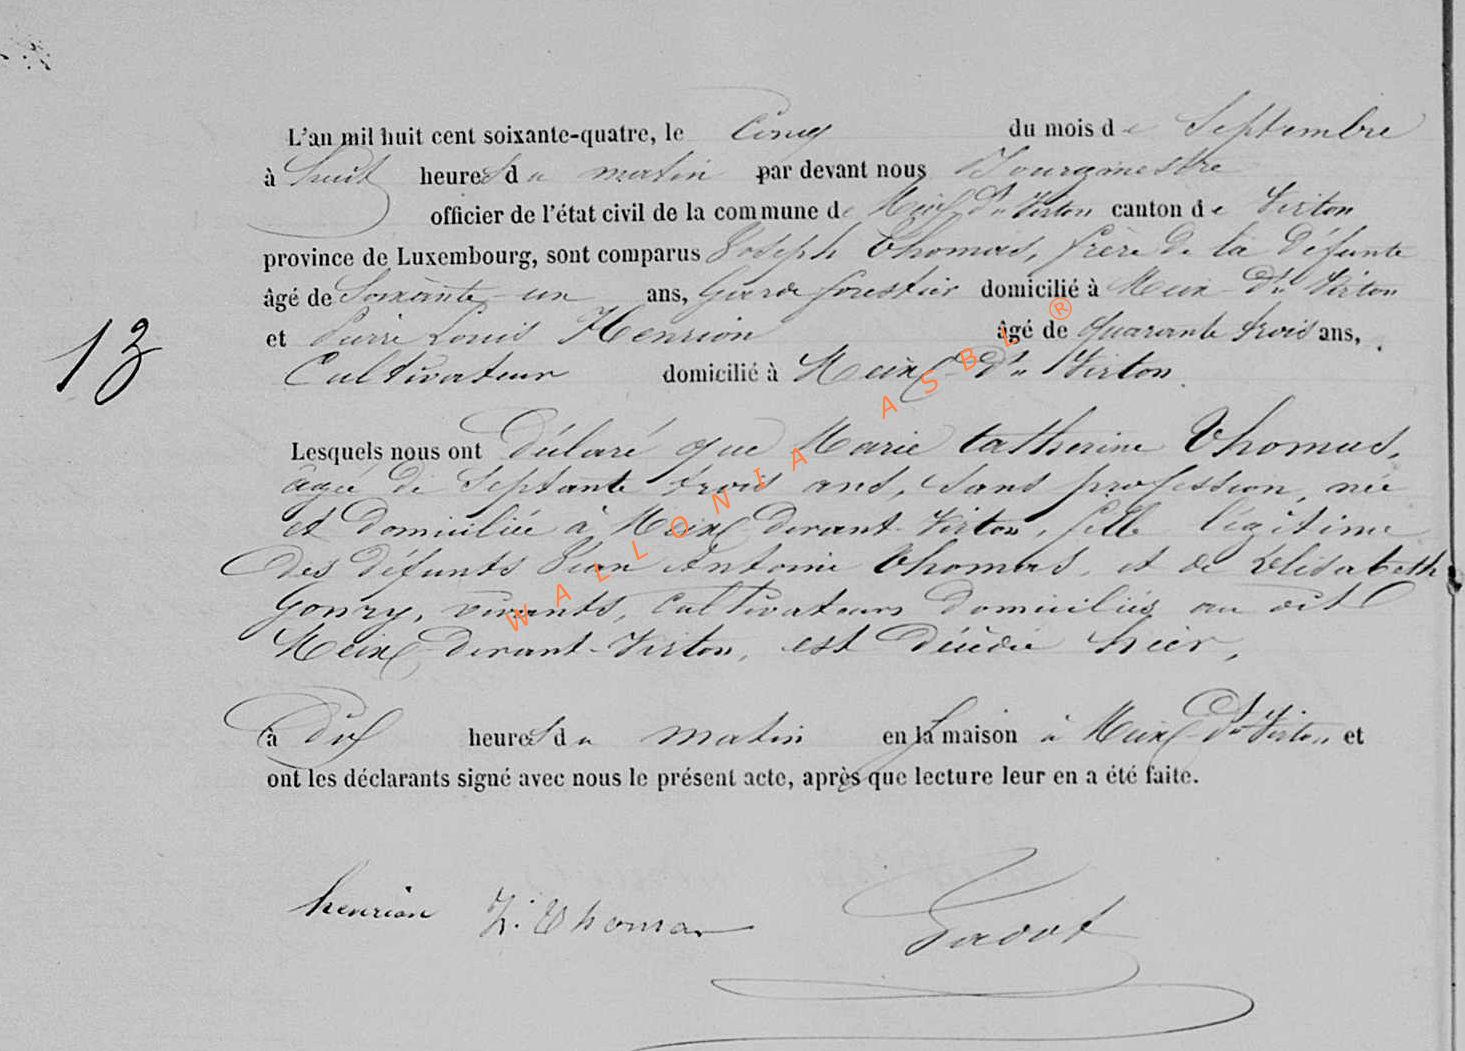 L'an mil huit cent soixante-quatre, le Cinq du mois de Septembre
à huit heures du matin par devant nous Bourgmestre
officier de l'état civil de la commune de Meix-Dt Virton canton de Virton
province de Luxembourg, sont comparus Joseph Thomas, frère de la défunte
âgé de Soixante-un ans, Garde forestier domicilié à Meix-Dt Virton
et Pierre Louis Henrion âgé de Quarante trois ans,
13
Cultivateur domicilié à Meix-Dt Virton.
Lesquels nous ont Déclaré que Marie Catherine Thomas,
âgée de Septante trois ans, Sans profession, née
et Domiciliée à Meix devant-Virton, fille légitime
Des défunts Jean Antoine Thomas, et de Elisabeth
Gonry, vivants, Cultivateurs Domiciliés au dit
Meix-Devant-Virton, est Décédée hier,
à Dix heures du matin en la maison à Meix-Dt Virton et
ont les déclarants signé avec nous le présent acte, après que lecture leur en a été faite.
henrion J. Thomas
WALLONIA ASBL ®